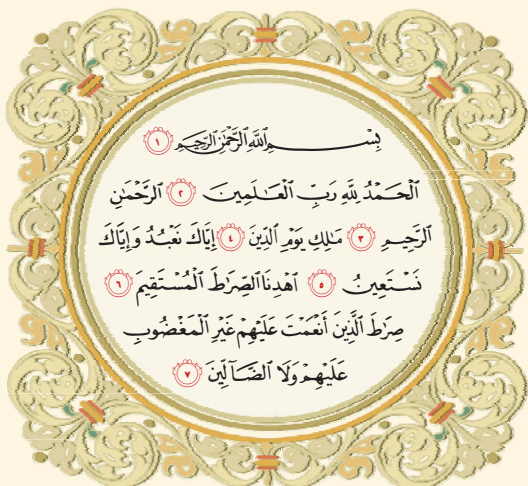 بِسْمِ اللَّهِ الرَّحْمَٰنِ الرَّحِيمِ ١
ٱلْحَمْدُ لِلَّهِ رَبِّ ٱلْعَـٰلَمِينَ ٢ ٱلرَّحْمَـٰنِ
ٱلرَّحِيمِ ٣ مَـٰلِكِ يَوْمِ ٱلدِّينِ ٤ إِيَّاكَ نَعْبُدُ وَإِيَّاكَ
نَسْتَعِينُ ٥ ٱهْدِنَا ٱلصِّرَٰطَ ٱلْمُسْتَقِيمَ ٦
صِرَٰطَ ٱلَّذِينَ أَنْعَمْتَ عَلَيْهِمْ غَيْرِ ٱلْمَغْضُوبِ
عَلَيْهِمْ وَلَا ٱلضَّآلِّينَ ٧